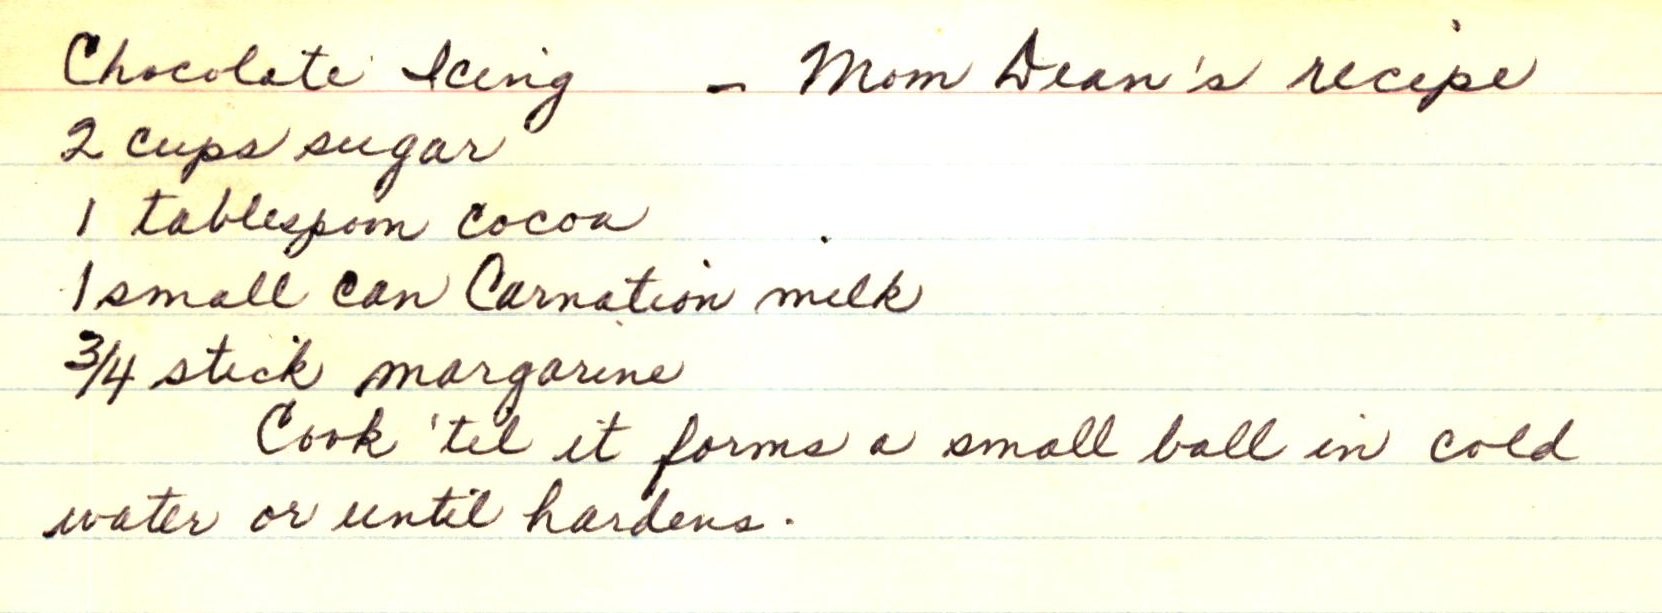 Chocolate Icing - Mom Dean's recipe
2 cups sugar
1 tablespoon cocoa
1 small can Carnation milk
3/4 stick margarine
Cook 'til it forms a small ball in cold
water or until hardens.